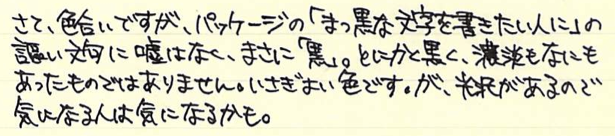 さて、色合いですが、パッケージの「まっ黒な文字を書きたい人に」の
謳い文句に嘘はなく、まさに「黒」。とにかく黒く、濃淡もなにも
あったものではありません。いさぎよい色です。が、光沢があるので
気になる人は気になるかも。